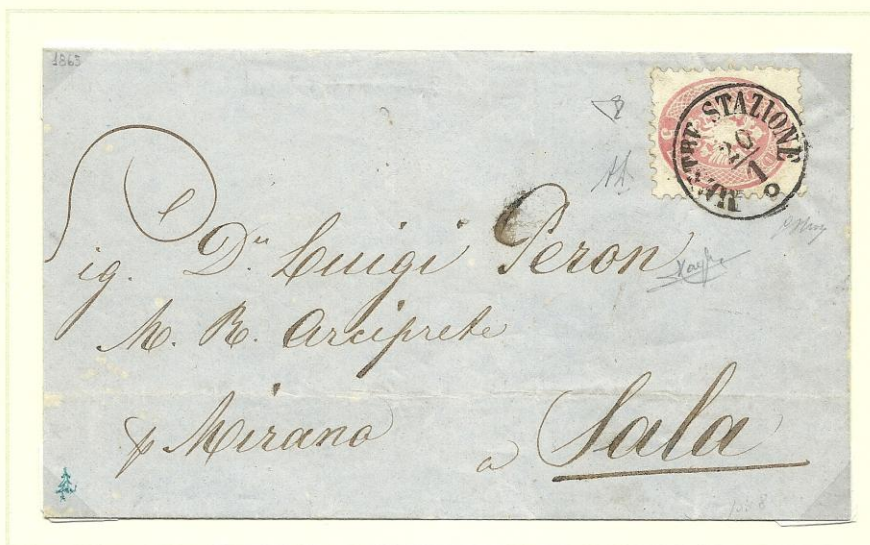 1863
MESTRE STAZIONE
20/1
Sig. Dn Luigi Peron
M. R. Arciprete
p Mirano
a Sala